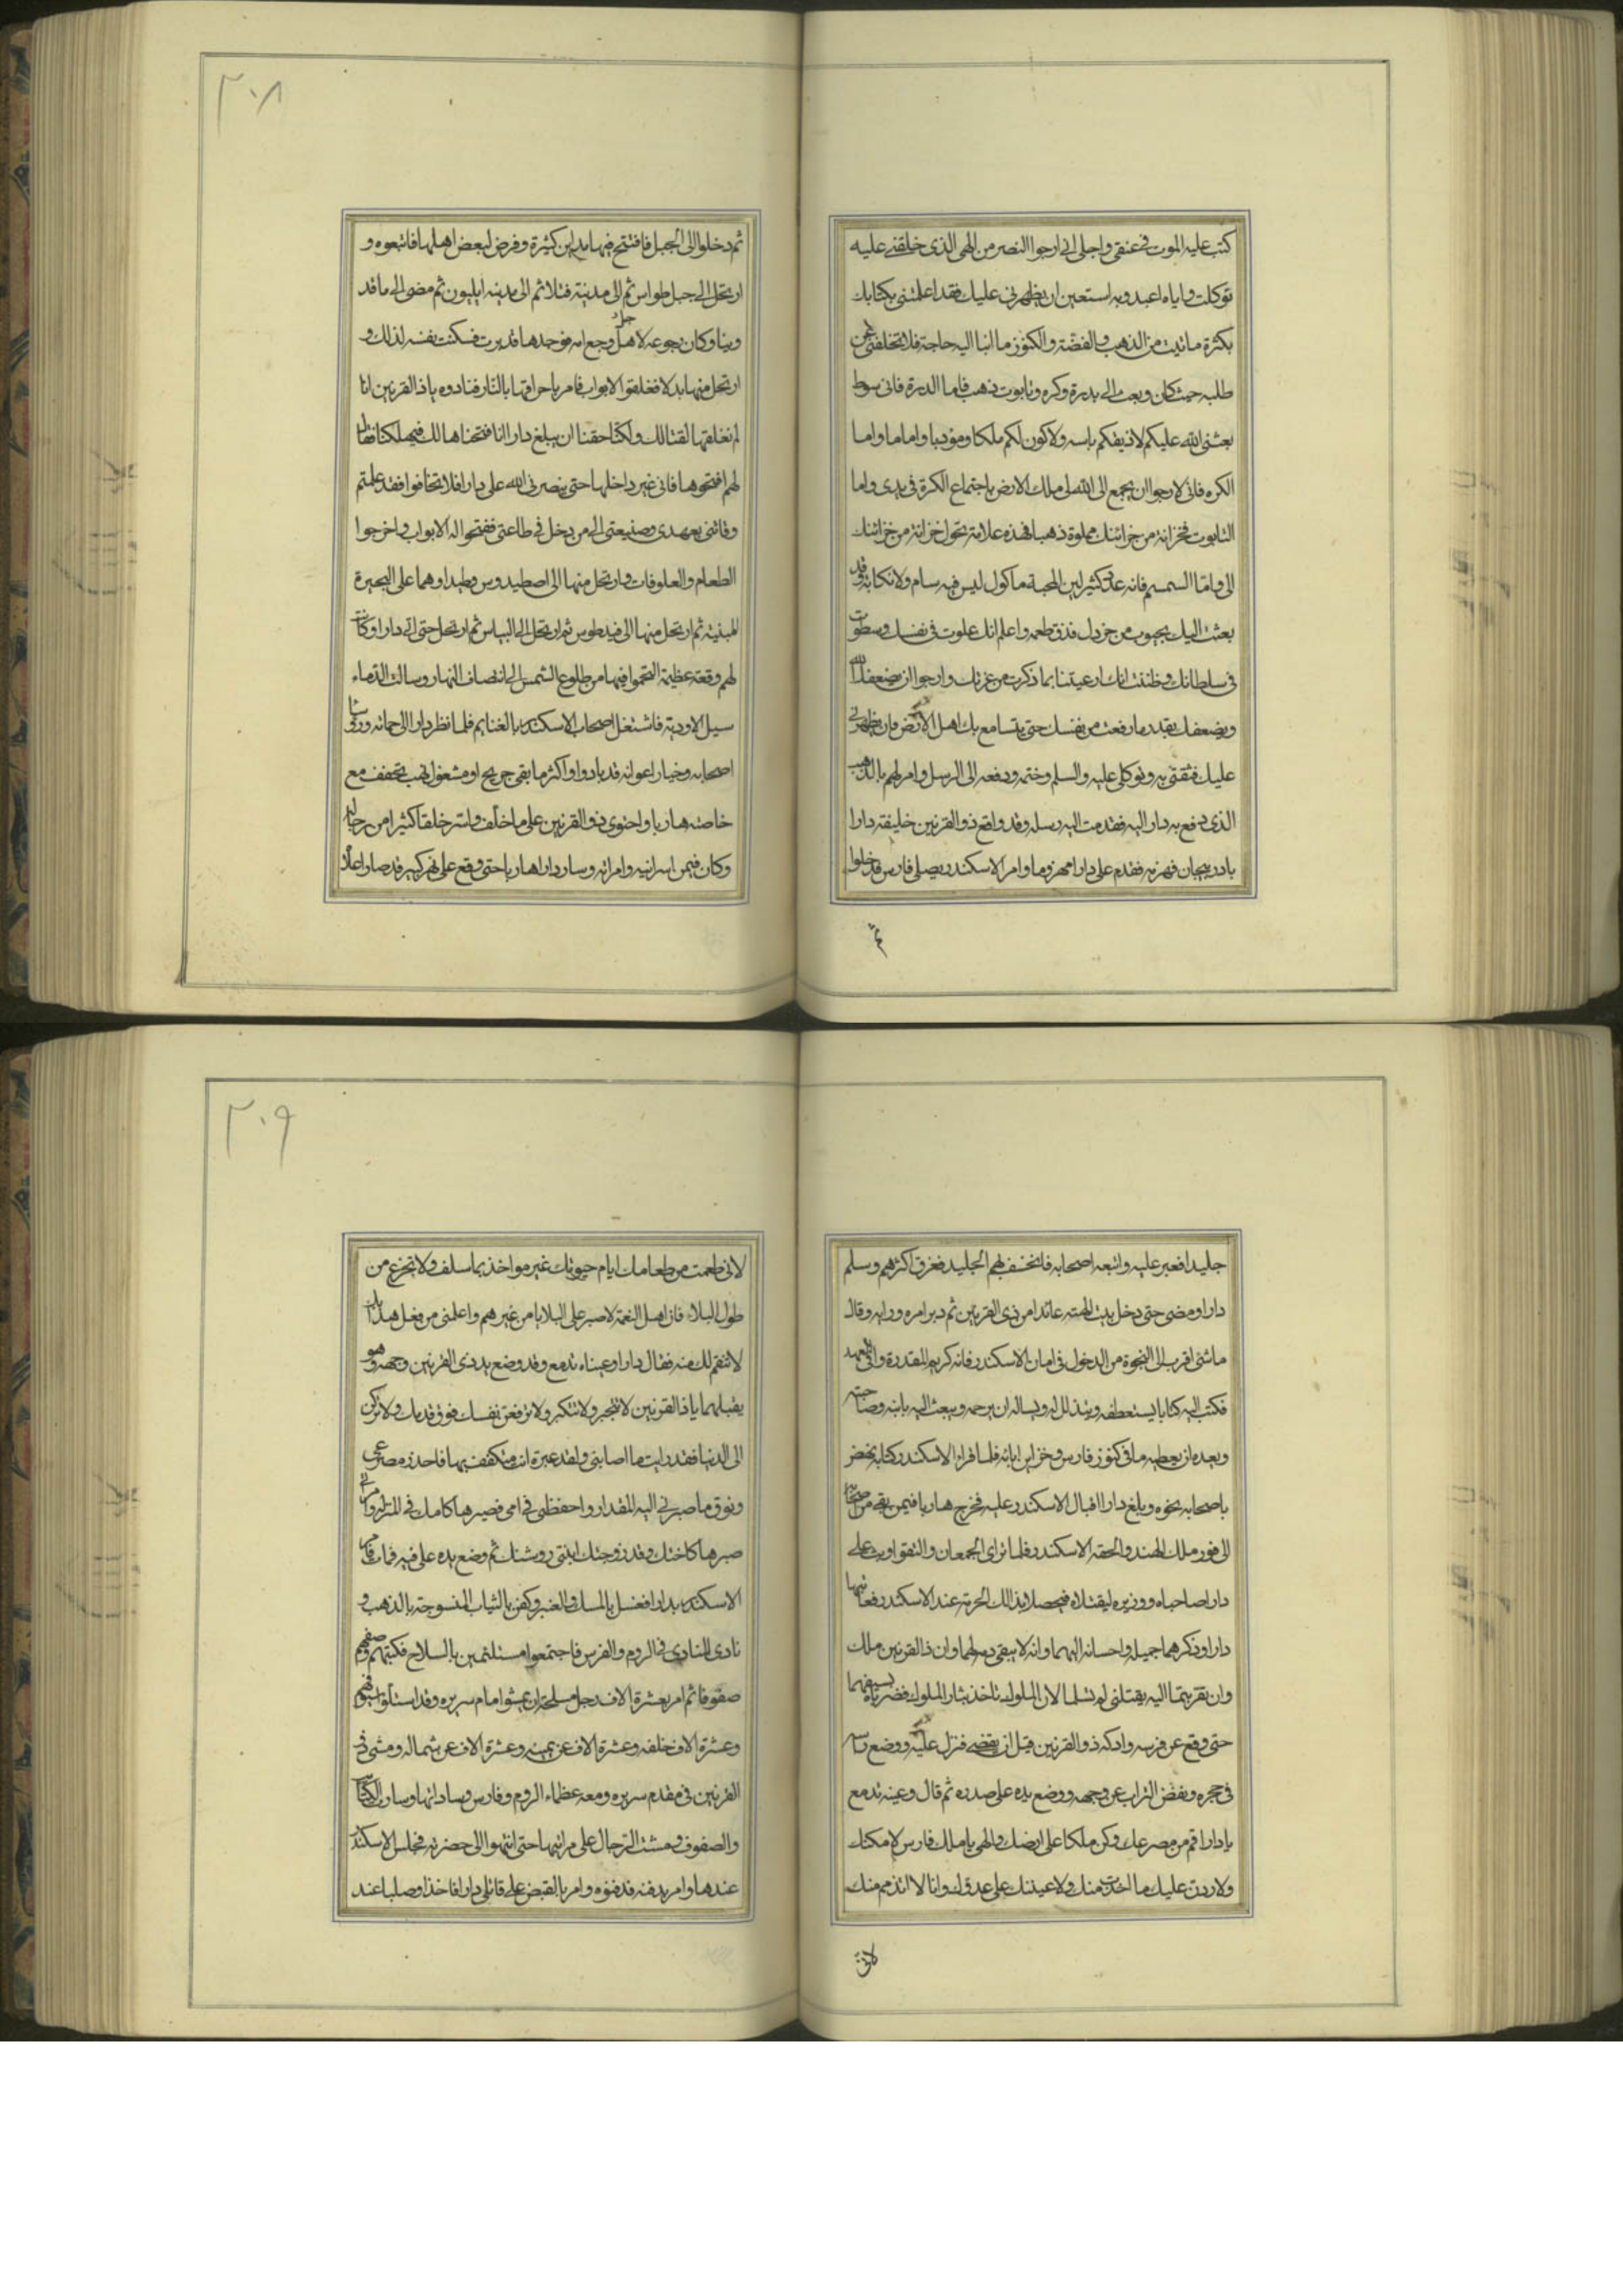 كتب عليه الموت في عنقي واجلى اني ارجوا النصر من الهي الذي خلقني عليه
توكلت واياه اعبد وبه استعين ان يظهرني عليك فقد اعلمتني بكتابك
بكثرة ما نيت من الذهب والفضة والكنوز ما انبا اليه حاجة فلا تخلفني عن
طلبه حيث كان وبعث الى بدرة وكره وتابوت ذهب فاما الدرة فاني سوط
بعثني الله عليكم لاذيفكم باسه ولاكون لكم ملكا ومؤدبا واماما واما
الكره فاني لارجوا ان يجمع الى الله لى ملك الارض باجتماع الكرة في يدى واما
التابوت فخزانة من خزائنك مملوة ذهبا فهذه علامة تحول خزانة من خزائنك
الى واما السمسم فانه عدد كثير لين المحبة ماكول ليس فيه سام ولا نكاية وقد
بعثت اليك بجيوب من خردل فذق طعمه واعلم انك علوت في نفسك وسطوت
في سلطانك وظننت انك ارعيتنا بما ذكرت من عزتك وارجوا ان يضعفك الله
ويضعفك بقدر ما رفعت من نفسك حتى يتسامع بك اهل الارض وان يظهرني
عليك فثقتي به وتوكلى عليه والسلم وختمه ودفعه الى الرسل وامر لهم بالذهب
الذى دفع به دارا اليه فقدمت اليه رسله وقد واقع ذو القرنين خليفة دارا
باذربيجان فهزمه فقدم على دارا مهزوما وامر الاسكندر يصلى فارس قد خلوا
ثم
٢٠٨
ثم دخلوا الى الجبل فافتتح فيها مداين كثيرة وفرض لبعض اهلها فاتبعوه و
ارتحل الى جبل طواس ثم الى مدينة فتلا ثم الى مدينة ايليون ثم مضى الى ماقد
وينا وكان رجوعه لاهل وجع امه فوجدها قد برت فسكنت نفسه لذلك و
ارتحل منها بدلا فغلقوا الابواب فامر باحراقها بالنار فنادوه ياذا القرنين انا
لم نغلقها لقتالك ولكنا خفنا ان يبلغ دارا انا فتحناها لك فيهلكنا فقال
لهم افتحوها فاني غير داخلها حتى ينصرني الله على دارا فلا تخافوا فقد علمتم
وفائي بعهدى وصنيعتي الى من دخل في طاعتى ففتحوا اله الابواب واخرجوا
الطعام والعلوفات وارتحل منها الى اصطيدوس وطيدا وهما على البحيرة
المبنية ثم ارتحل منها الى فيدطوس ثم ارتحل الى البياس ثم ارتحل حتى اتى دارا وكانت
لهم وقعة عظيمة التحموا فيها من طلوع الشمس الى انصاف النهار وسالت الدماء
سيل الاودية فاشتغل اصحاب الاسكندر بالغنايم فلما نظر دارا الى حماته ورؤسا
اصحابه وخيار اعوانه قد بادوا واكثر ما بقى جريح او مشغول ذهب يتخفف مع
خاصته هاربا واحتوى ذو القرنين على ما خلف واسر خلقا كثيرا من رجاله
وكان فيمن اسر انيه وامراته وسار دارا هاربا حتى وقع على نهر كبير قد صار اعلاه
جليدا فعبر عليه واتبعه اصحابه فانخسف بهم الجليد فغرق اكثرهم وسلم
دارا ومضى حتى دخل بيت الهته عائدا من ذى القرنين ثم دبر امره ورايه وقال
ما شئ اقرب الى النجوة من الدخول في امان الاسكندر فانه كريم المقدرة وافي العهد
فكتب اليه كتابا يستعطفه ويتذلل له ويساله ان يرحمه ويبعث اليه بابنه وصاحبته
ويعده ان يعطيه ما في كنوز فارس وخزاين ابائه فلما قراء الاسكندر كتابه نحض
باصحابه نحوه وبلغ دارا اقبال الاسكندر عليه فخرج هاربا فيمن بقى من اصحابه
الى فور ملك الهند والحقه الاسكندر فلما تراى الجمعان والتقوا وثب على
دارا صاحباه ووزيره ليقتلاه فيحصلا بذالك الحرمة عند الاسكندر فعاتبهما
دارا وذكرهما جميله واحسانه اليهما وانه لا يبقى دمه لهما وان ذا القرنين ملك
وان تقربتما اليه بقتلى لم تسلما لان الملوك تاخذ بثار الملوك فضرباه بسيفهما
حتى وقع عن فرسه وادركه ذو القرنين قبل ان يقضى فنزل عليه ووضع راسه
في حجره ونفض التراب عن وجهه ووضع يده على صدره ثم قال وعينه تدمع
يا دارا قم من مصرعك وكن ملكا على ارضك والهى يا ملك فارس لامكنك
ولاردن عليك ما اخذت منك ولاعيننك على عدوك وانا لا اتذمم منك
لانى
٢٠٩
لانى طعمت من طعامك ايام حيوتك غير مواخذ بما سلف ولا تجزع من
طول البلاء فان اهل النعمة لاصبر على البلايا من غيرهم واعلمنى من فعل هذا بك
لانتقم لك منه فقال دارا وعيناه تدمع وقد وضع يد ذى القرنين وجهه وهو
يقبلهما ياذا القرنين لا تتجبر ولا تتكبر ولا ترفعن نفسك فوق قدرك ولا تركن
الى الدنيا فقد رايت ما اصابنى ولقد عبرة انت متكفف بها فاحذر مصرعى
وتوق ما صبرنى اليه المقدار واحفظنى في امى فصيرها كامك في المنزلة وامراتى
صيرها كاختك وقد زوجتك ابنتى روشنك ثم وضع يده على فيه فمات فامر
الاسكندر بدارا فغسل بالمسك والعنبر وكفن بالثياب المنسوجة بالذهب و
نادى المنادى في الروم والفرس فاجتمعوا مستلئمين بالسلاح فكتبهم وصفهم
صفوفا ثم امر بعشرة الاف رجل مسلحة ان يمشوا امام سريره وقد استلوا سيوفهم
وعشرة الاف خلفه وعشرة الاف عن يمينه وعشرة الاف عن شماله ومشى ذى
القرنين في مقدم سريره ومعه عظماء الروم وفارس وساداتها وسارت الكتائب
والصفوف ومشت الرجال على مراتبها حتى انتهوا الى حضرته فجلس الاسكندر
عندها وامر بدفنه فدفنوه وامر بالقبض على قاتلى دارا فاخذا وصلبا عند